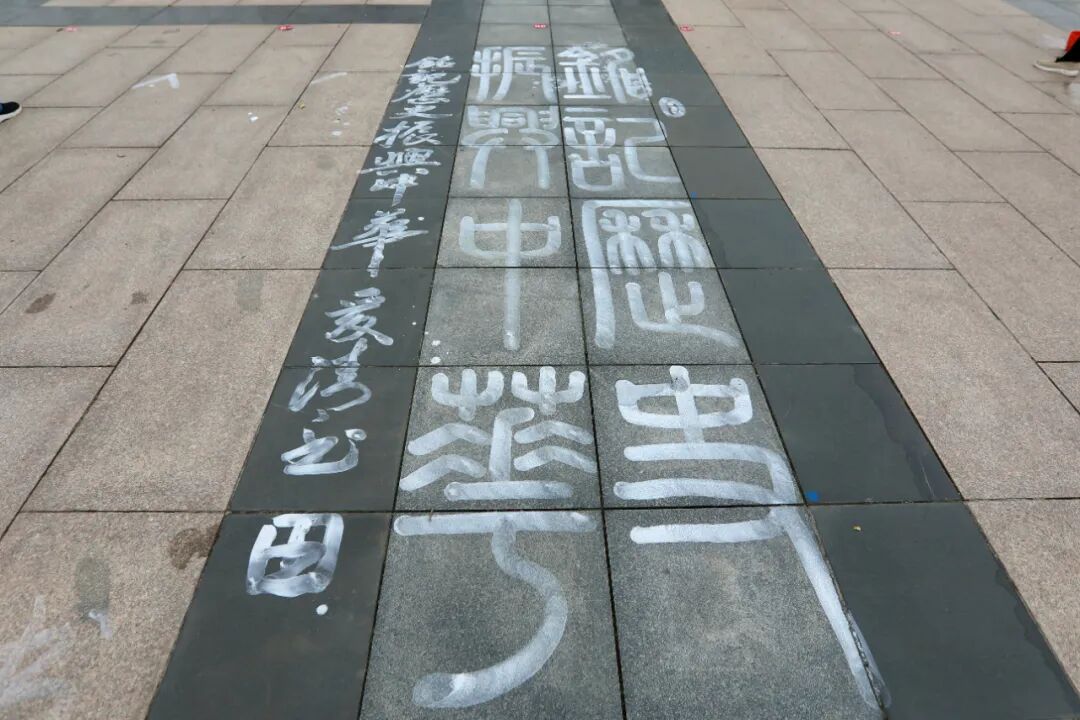 銘記歷史
振興中華
銘記歷史振興中華书